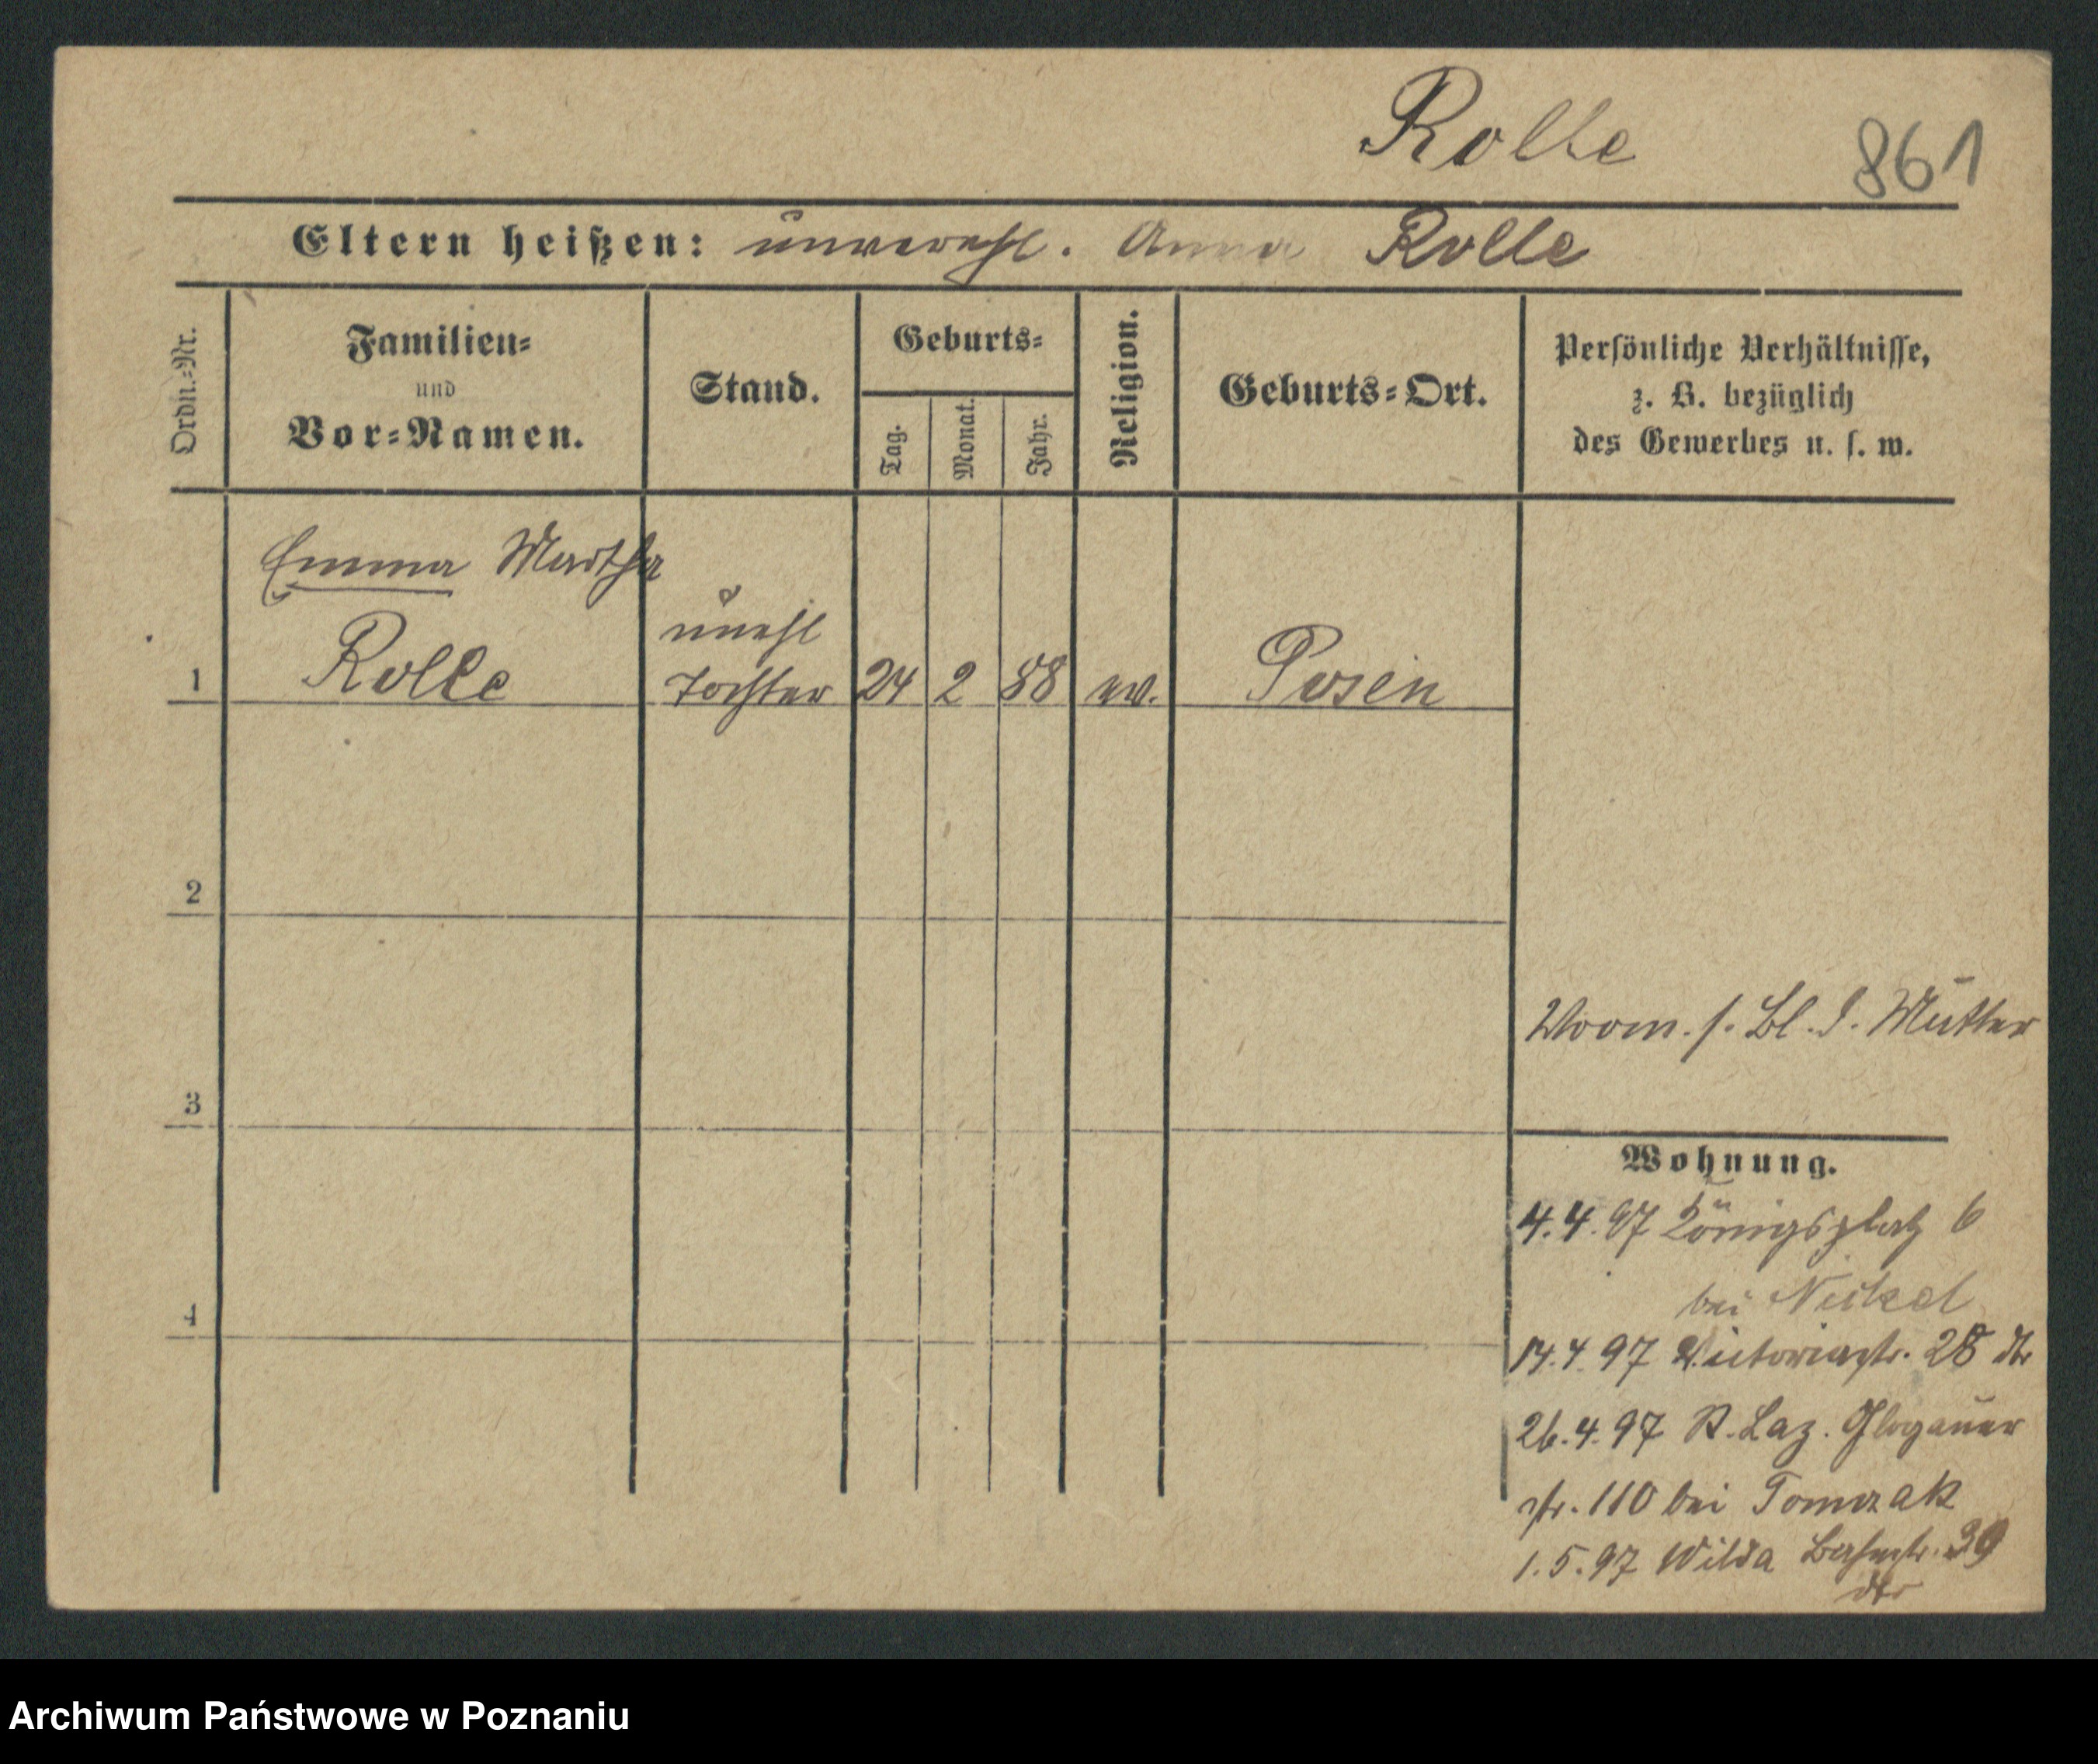 Rolle
861
Eltern heißen: unverehl. Anna Rolle
Ordn.-Nr.
Familien-
und
Vor-Namen.
Stand.
Geburts-
Tag.
Monat.
Jahr.
Religion.
Geburts-Ort.
Persönliche Verhältnisse,
z. B. bezüglich
des Gewerbes u. s. w.
Emma Martha
Rolle
unehl
Tochter
1
24
2
88
ev.
Posen
2
3
4
Vorm. s. Bl. d. Mutter
Wohnung.
4.4.97 Königsplatz 6
bei Nickel
14.4.97 Victoriastr. 28
26.4.97 St. Laz. Glogauer
str. 110 bei Tomczak
1.5.97 Wilda Bahnstr. 39
Archiwum Państwowe w Poznaniu